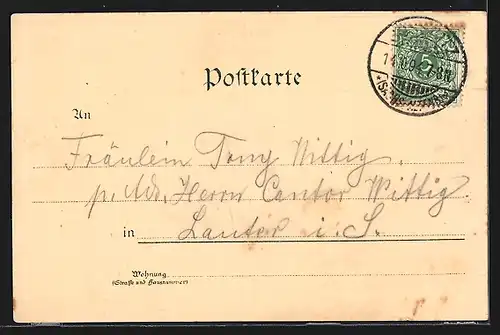 Postkarte
An
Fräulein Tony Wittig.
p. Adr. Herrn Cantor Wittig
in Lauter i. S.
Wohnung
(Straße und Hausnummer)
5